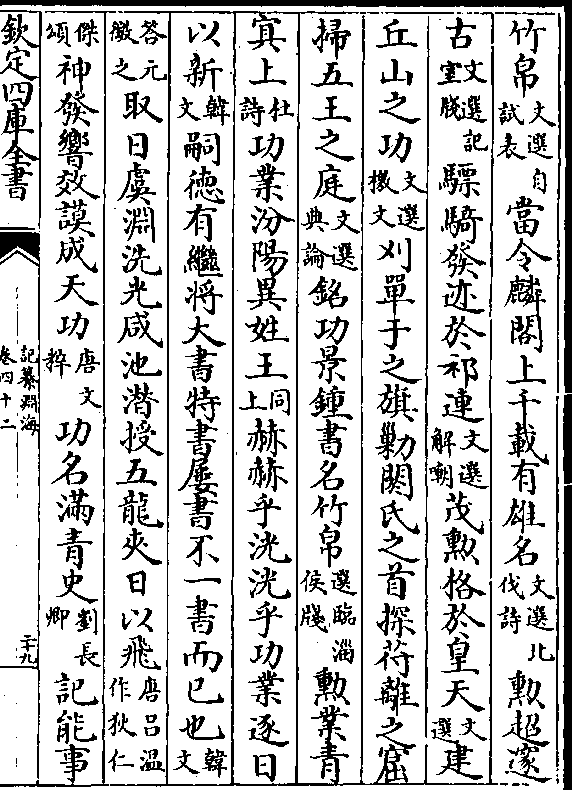 竹帛文選自試表當令麟閣上千載有雄名文選北伐詩勲超邃
古文選記室牋驃騎發迹於祁連文選解嘲茂勲格於皇天文選建
丘山之功文選檄文刈單于之旗勦閼氏之首探符離之窟
掃五王之庭文選典論銘功景鍾書名竹帛選臨淄侯牋勲業青
冥上杜詩功業汾陽異姓王同上赫赫乎洸洸乎功業逐日
以新韓文嗣徳有繼將大書特書屢書不一書而已也韓文
答元微之取日虞淵洗光咸池潛授五龍夾日以飛唐吕温作狄仁
傑頌神發響效謨成天功唐文粹功名滿青史劉長卿記能事
欽定四庫全書
記纂淵海
卷四十二
二十九